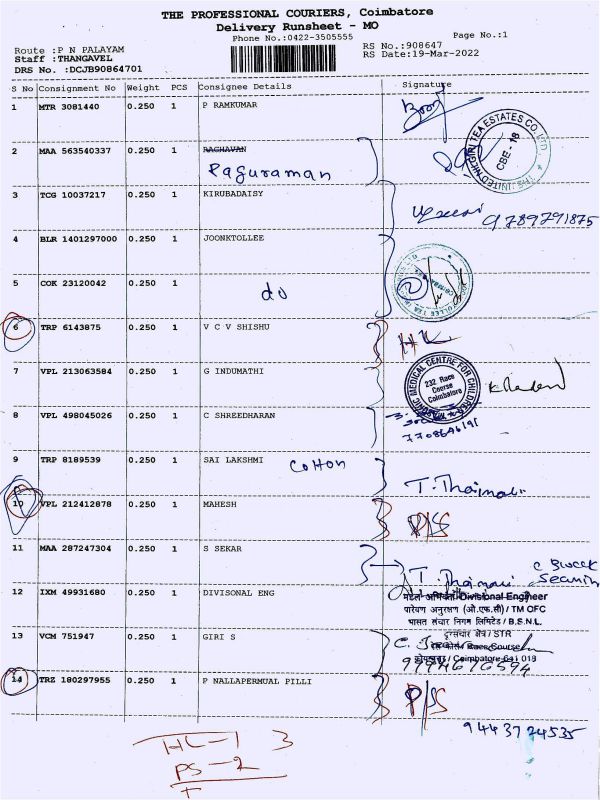 THE PROFESSIONAL COURIERS, Coimbatore
Delivery Runsheet - MO
Phone No.:0422-3505555
Page No.:1
Route :P N PALAYAM
RS No.:908647
Staff :THANGAVEL
RS Date:19-Mar-2022
DRS No. :DCJB90864701
S No Consignment No Weight PCS Consignee Details Signature
1 MTR 3081440 0.250 1 P RAMKUMAR
THE UNITED NILGIRI TEA ESTATES CO. LTD.
CBE - 18
2 MAA 563540337 0.250 1 RAGHAVAN
Raguraman
3 TCG 10037217 0.250 1 KIRUBADAISY
9789791875
4 BLR 1401297000 0.250 1 JOONKTOLLEE
5 COK 23120042 0.250 1
do
6 TRP 6143875 0.250 1 V C V SHISHU
7 VPL 213063584 0.250 1 G INDUMATHI
MEDICAL CENTRE FOR
232 Race
Course
Coimbatore
8 VPL 498045026 0.250 1 C SHREEDHARAN
9 TRP 8189539 0.250 1 SAI LAKSHMI
Cotton
10 VPL 212412878 0.250 1 MAHESH
P/S
11 MAA 287247304 0.250 1 S SEKAR
12 IXM 49931680 0.250 1 DIVISONAL ENG
Divisional Engineer
पारेषण अनुरक्षण (ओ.एफ.सी) / TM OFC
भारत संचार निगम लिमिटेड / B.S.N.L.
दूरसंचार क्षेत्र / STR
13 VCM 751947 0.250 1 GIRI S
Race Course
Coimbatore-641 018
14 TRZ 180297955 0.250 1 P NALLAPERMUAL PILLI
P/S
9443724535
3
PS-2